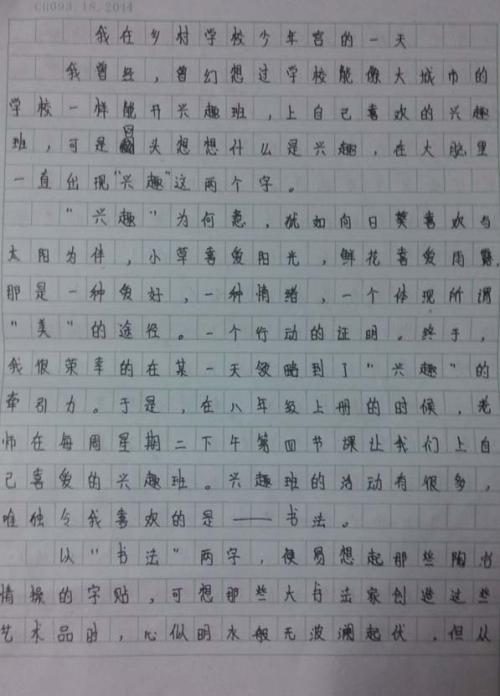 CH093.18.2014
我在乡村学校少年宫的一天
我曾经，曾幻想过学校能像大城市的
学校一样能开兴趣班，上自己喜欢的兴趣
班，可是回头想想什么是兴趣，在大脑里
一直出现“兴趣”这两个字。
“兴趣”为何意，犹如向日葵喜欢与
太阳为伴，小草喜爱阳光，鲜花喜爱雨露，
那是一种爱好，一种情绪，一个体现所谓
“美”的途径。一个行动的证明。终于，
我很荣幸的在某一天领略到了“兴趣”的
牵引力。于是，在八年级上册的时候，老
师在每周星期二下午第四节课让我们上自
己喜爱的兴趣班。兴趣班的活动有很多，
唯独令我喜欢的是——书法。
以“书法”两字，便易想起那些陶冶
情操的字贴，可想那些大书法家创造这些
艺术品时，心似明水般无波澜起伏，但从